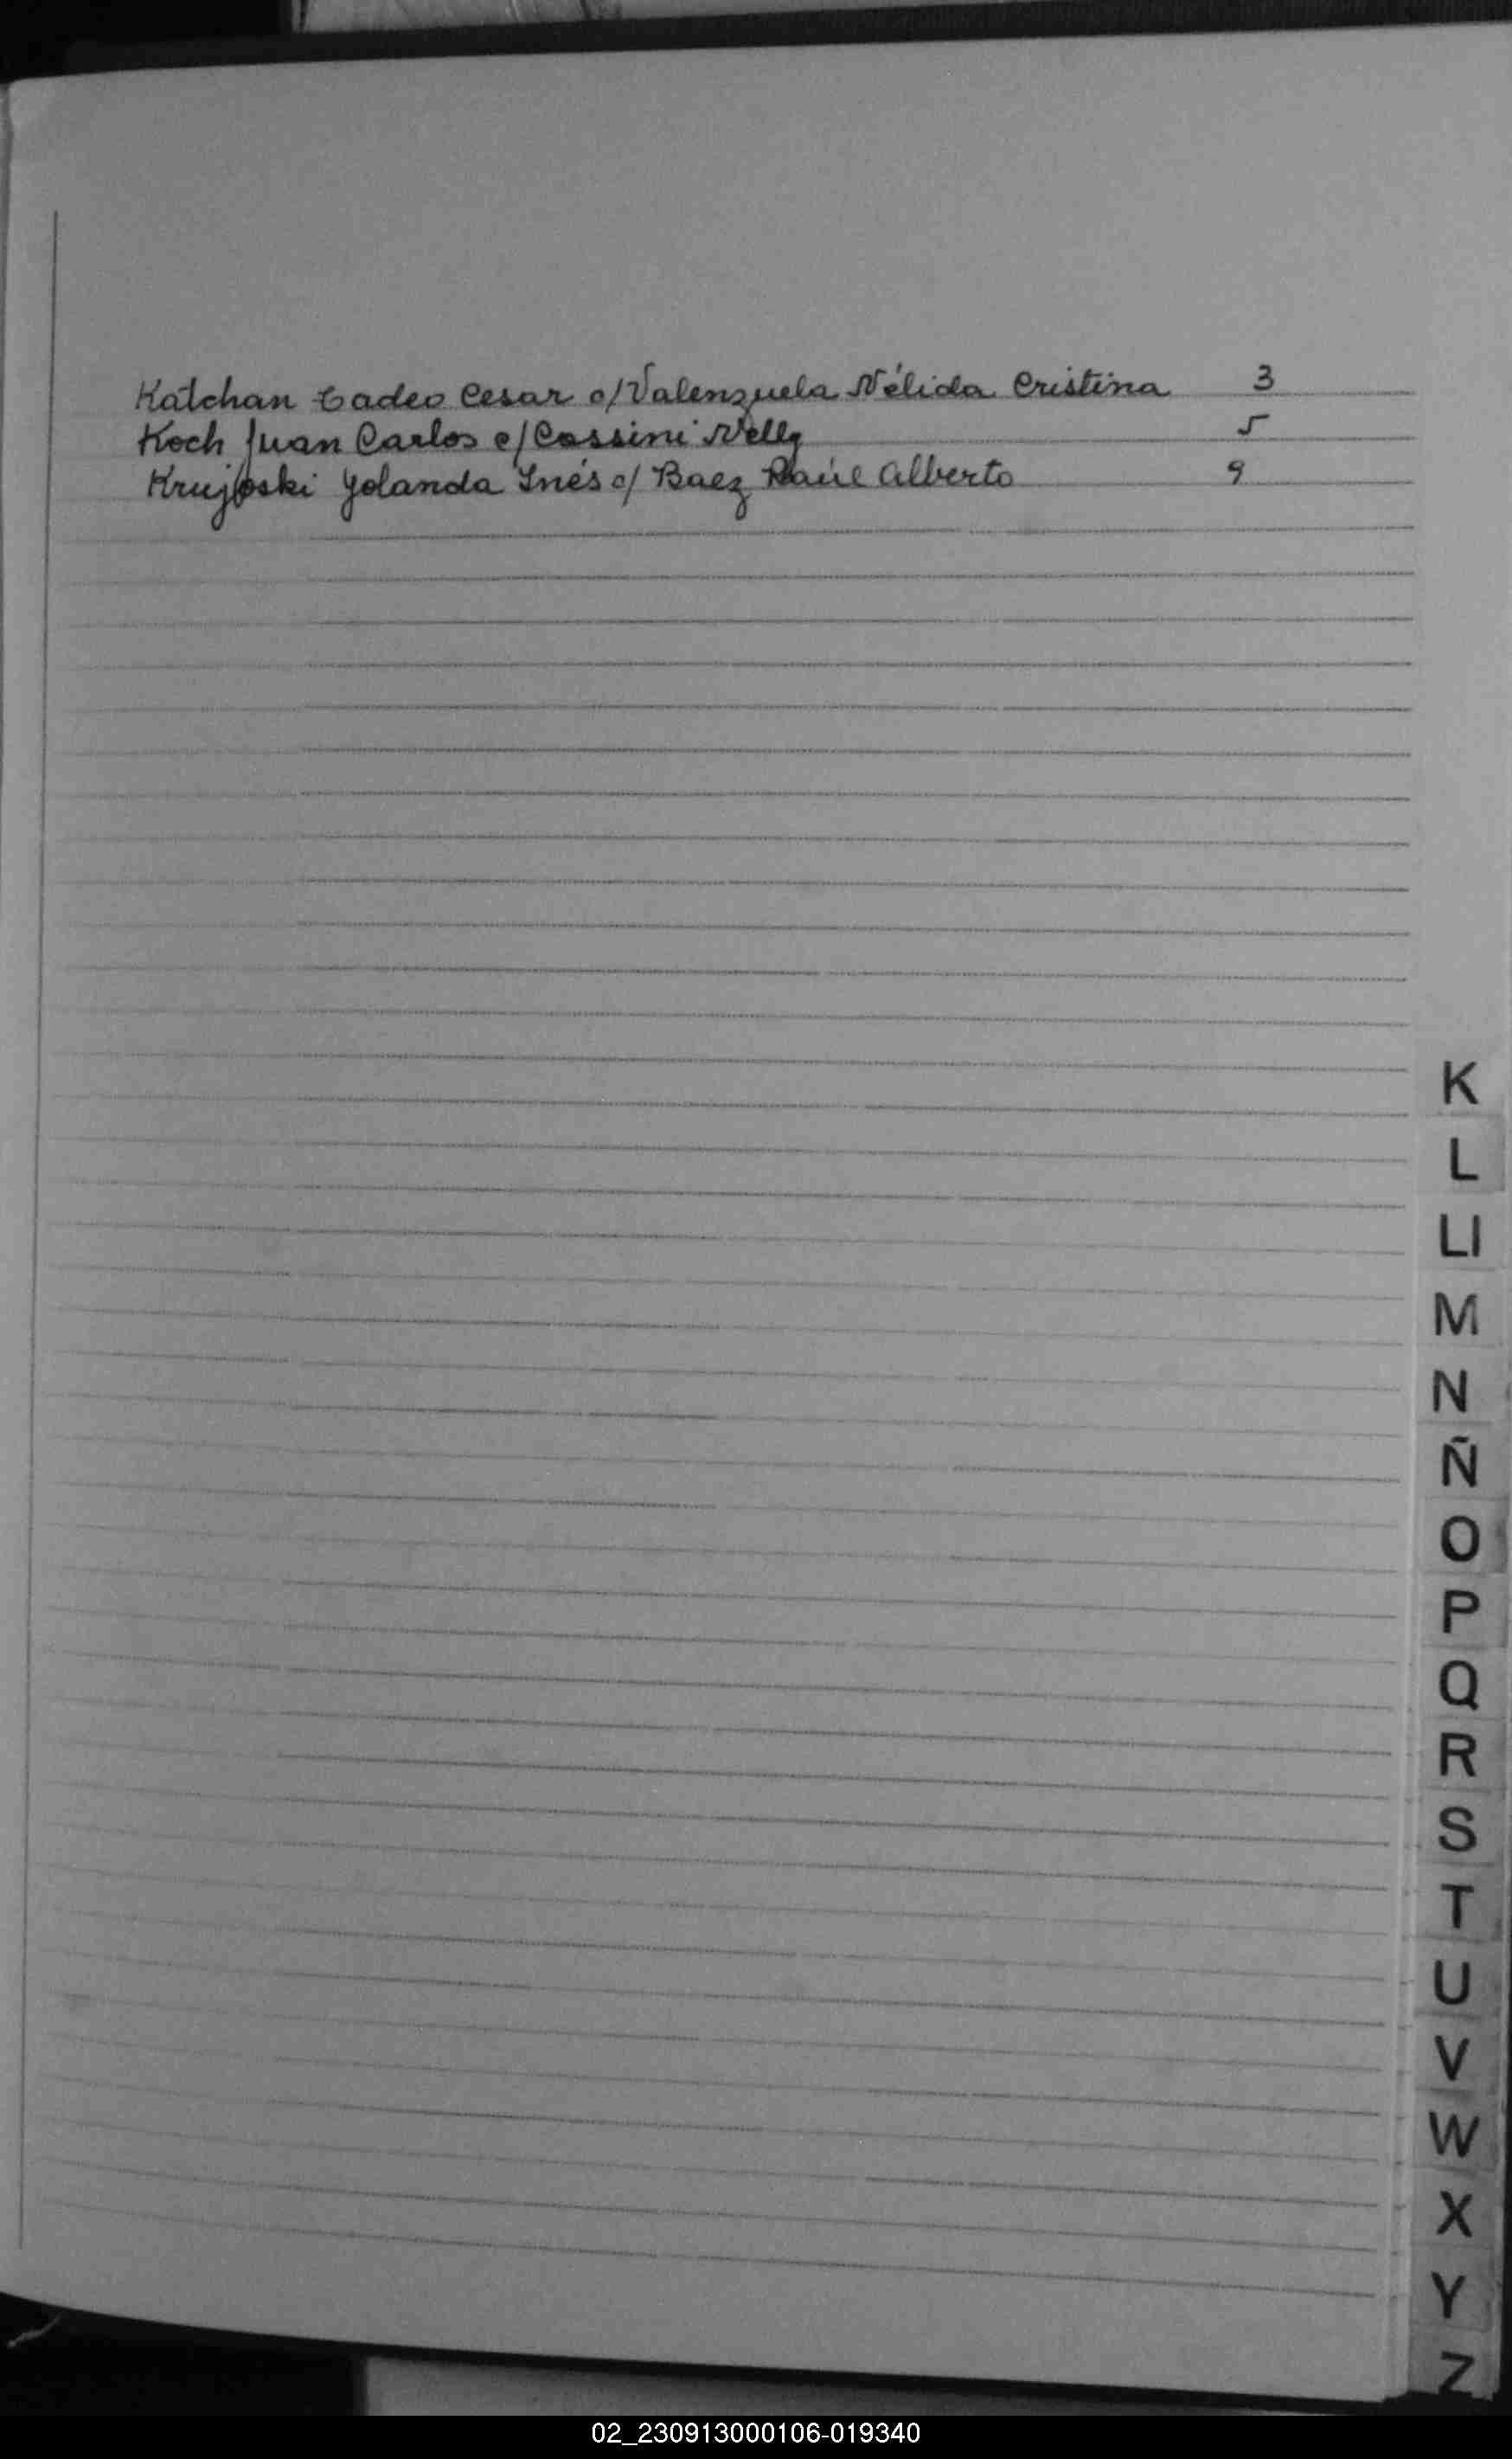 Katchan Tadeo Cesar c/ Valenzuela Nélida Cristina 3
Koch Juan Carlos c/ Cassini Nelly 5
Yolanda Inés c/ Baez Raúl Alberto 9
K
L
Ll
M
N
Ñ
O
P
Q
R
S
T
U
V
W
X
Y
Z
02_230913000106-019340